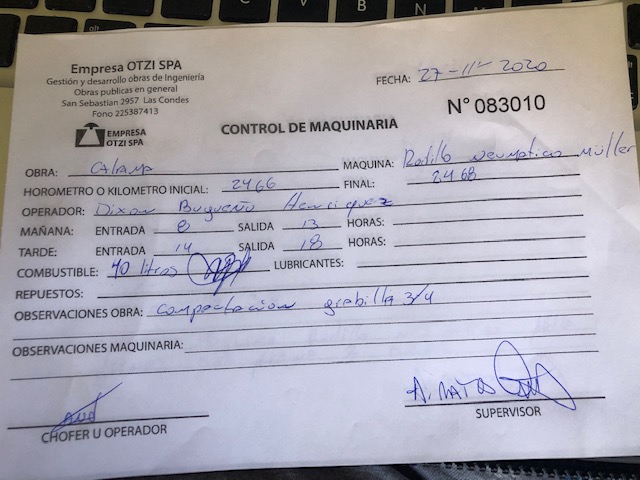 Empresa OTZI SPA
Gestión y desarrollo obras de Ingeniería
Obras publicas en general
San Sebastian 2957 Las Condes
Fono 225387413
FECHA: 27-11-2020
EMPRESA
OTZI SPA
CONTROL DE MAQUINARIA
N° 083010
OBRA: Calama MAQUINA: Rodillo neumatico Müller
HOROMETRO O KILOMETRO INICIAL: 2466 FINAL: 2468
OPERADOR: Dixon Bugueño Henriquez
MAÑANA: ENTRADA 8 SALIDA 13 HORAS:
TARDE: ENTRADA 14 SALIDA 18 HORAS:
COMBUSTIBLE: 40 litros LUBRICANTES:
REPUESTOS:
OBSERVACIONES OBRA: Compactacion grabilla 3/4
OBSERVACIONES MAQUINARIA:
CHOFER U OPERADOR
SUPERVISOR